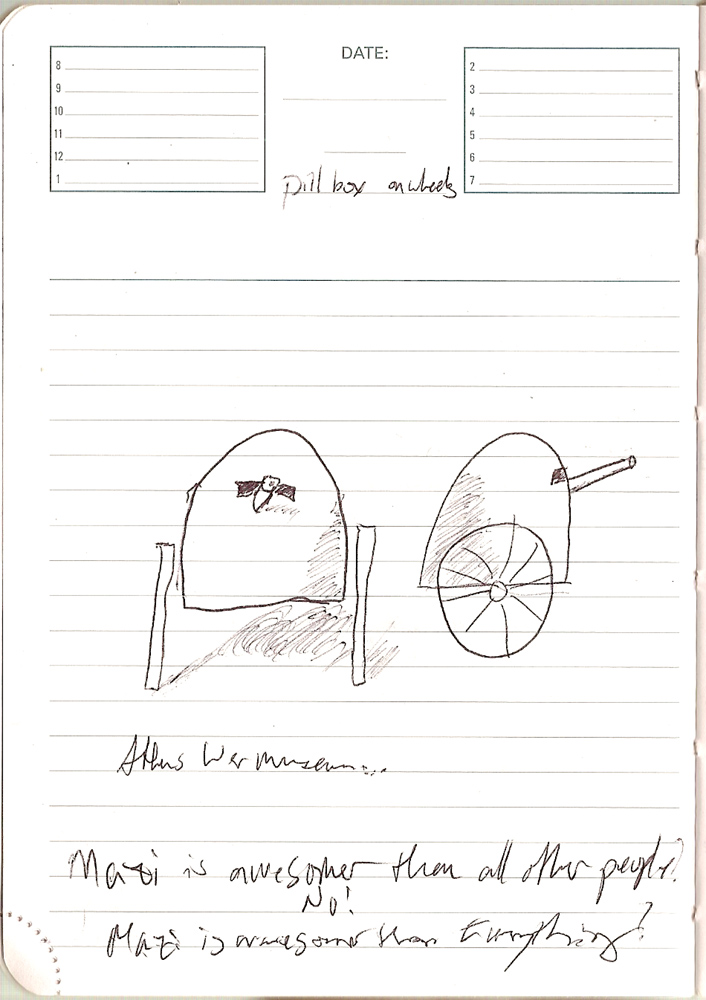 DATE:
8
9
10
11
12
1
2
3
4
5
6
7
pill box on wheels
Athens War museum...
Mazi is awesomer than all other people!
No!
Mazi is awesomer than Everything!